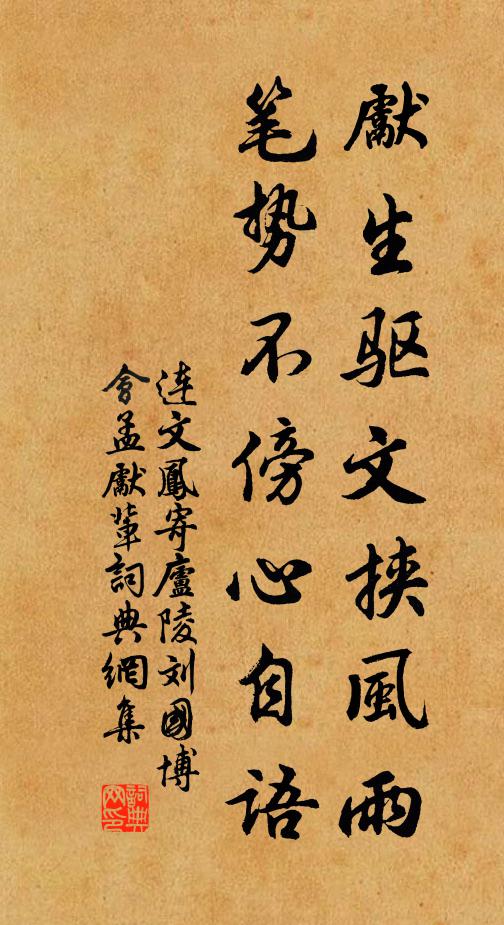 獻生驱文挟風雨
笔势不傍心自语
连文鳳寄廬陵刘國博
會孟獻軰詞典網集
詞典网印